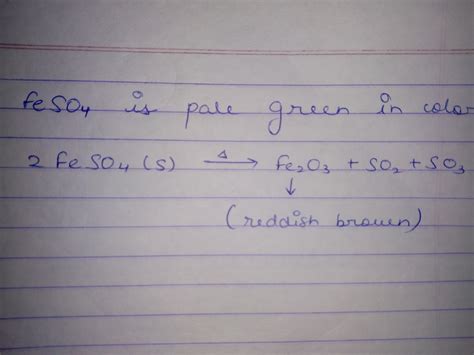 FeSO4 is pale green in color
2 FeSO4 (s) Δ→ Fe2O3 + SO2 + SO3
↓
(reddish brown)